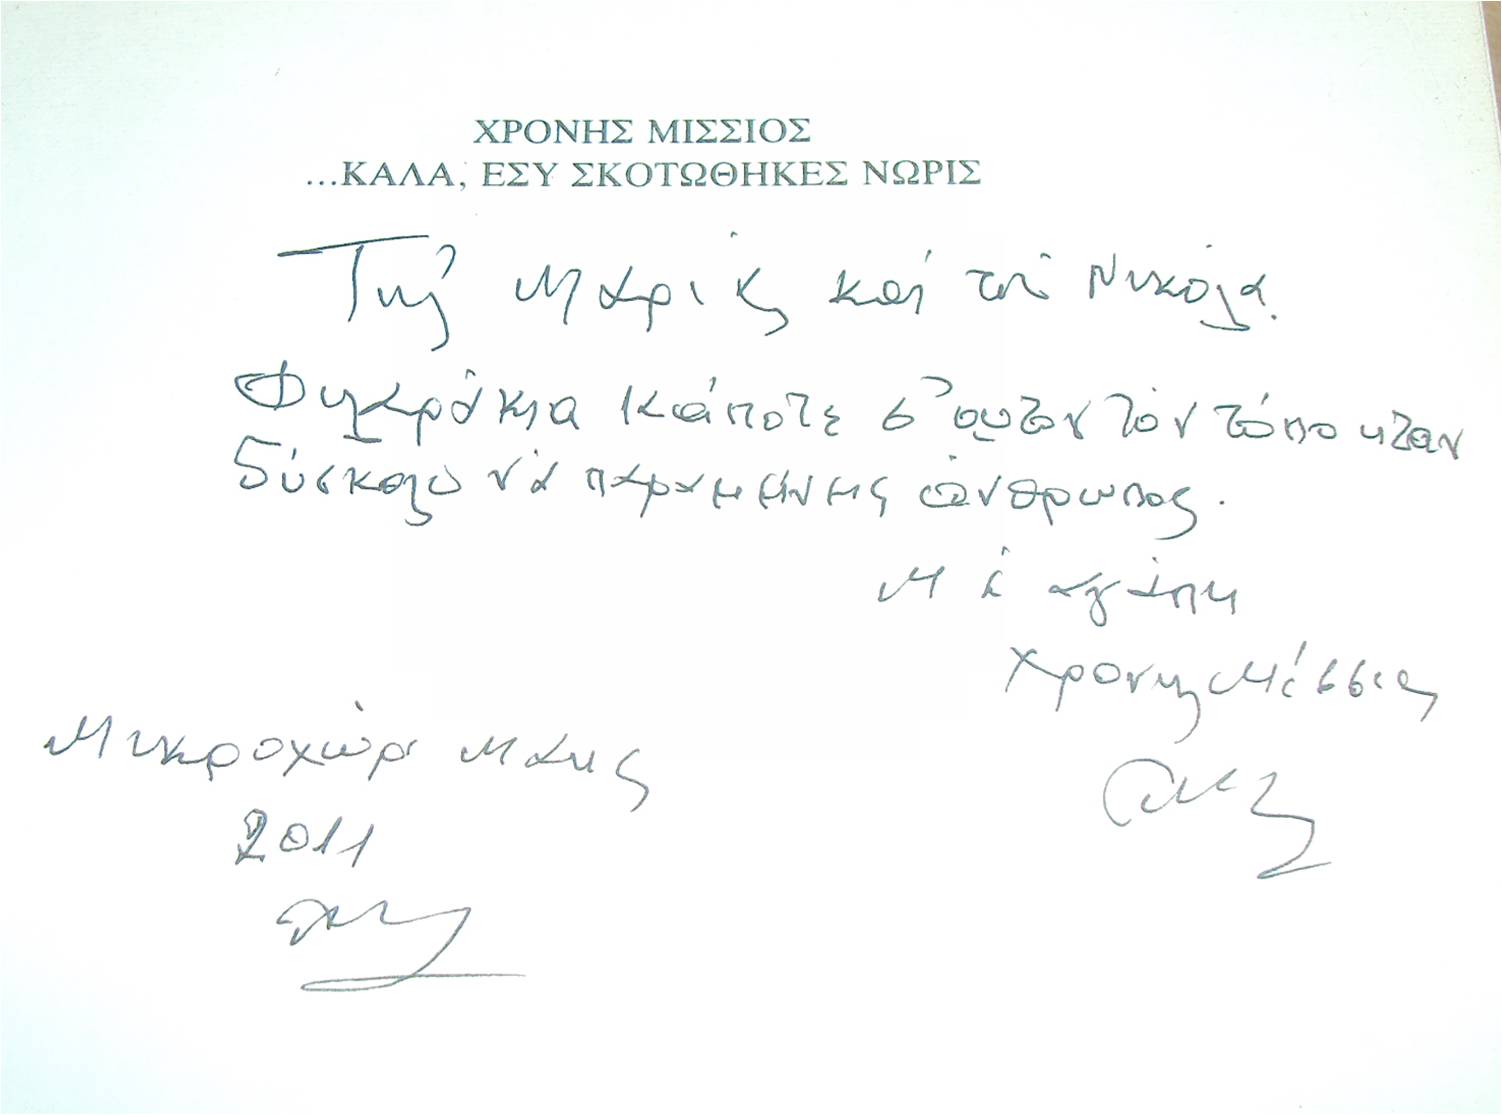 ΧΡΟΝΗΣ ΜΙΣΣΙΟΣ
...ΚΑΛΑ, ΕΣΥ ΣΚΟΤΩΘΗΚΕΣ ΝΩΡΙΣ
Τῆς Μαρίας καί τοῦ Νικόλα.
Φιλαράκια κάποτε σ' αυτόν τόν τόπο ήταν
δύσκολο νά παραμείνεις άνθρωπος.
Μέ αγάπη
Χρόνης Μίσσιος
Μικροχώρι Μάης
2011